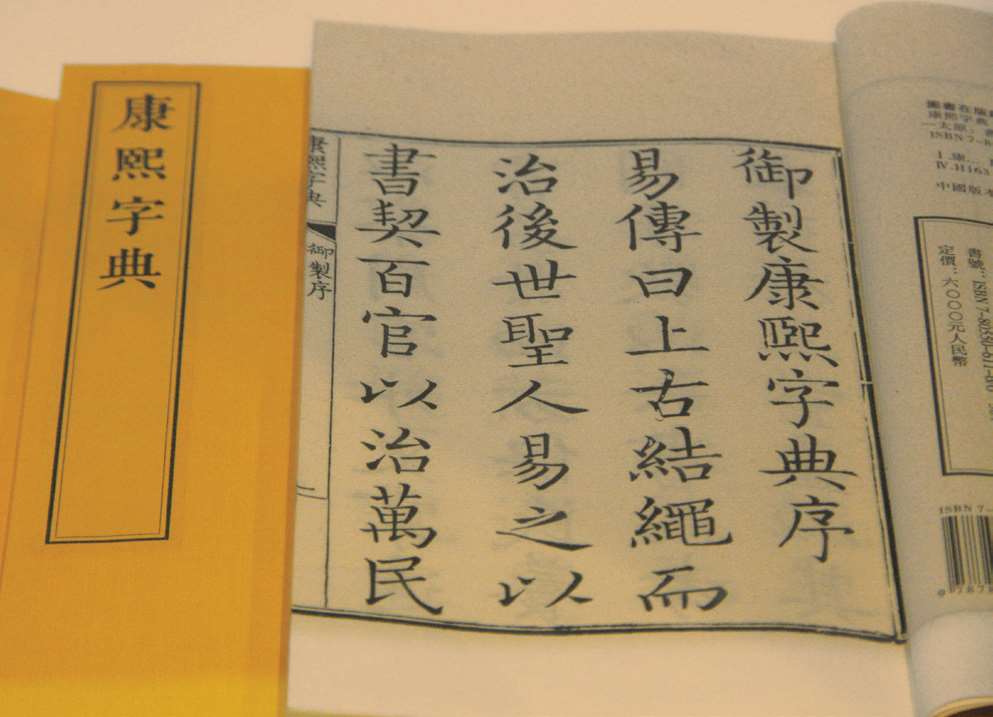 康熙字典
御製康熙字典序
易傳曰上古結繩而
治後世聖人易之以
書契百官以治萬民
康熙字典
御製序
圖書在版
康熙字典
一太原：
ISBN 7-8
1.康…
Ⅳ.H163
中國版本
書號：ISBN 7-80550-617-8
定價：六〇〇〇元人民幣
ISBN 7-
9 787